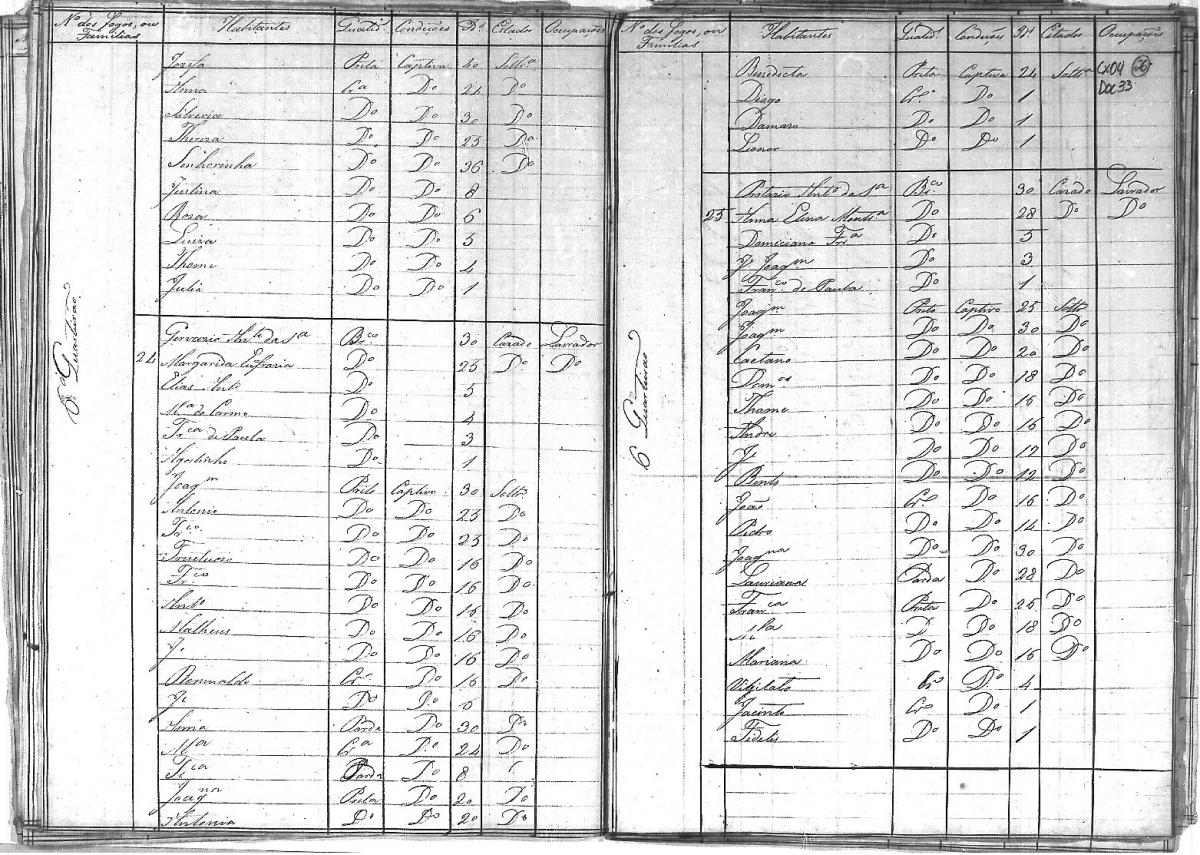 Nos dos Fogos, ou Familias Habitantes Qualids Condições Ids Estados Occupações
Josefa Preta Captiva 40 Soltra
Anna Cra Do 24 Do
Silveria Do Do 30 Do
Thereza Do Do 25 Do
Senhorinha Do Do 36 Do
Justina Do Do 8
Roza Do Do 6
Luiza Do Do 5
Thome Do Do 4
Julia Do Do 1
6º Quarteirão
Gervazio Anto da Sa Brco 30 Cazado Lavrador
24 Margarida Eufrazia Do 25 Do Do
Elias Anto Do 5
Ma do Carmo Do 4
Frca de Paula Do 3
Agostinho Do 1
Joaqm Preto Captivo 30 Soltr
Antonio Do Do 25 Do
Frco Do Do 25 Do
Do Do 16 Do
Frco Do Do 16 Do
Anto Do Do 16 Do
Matheus Do Do 16 Do
Je Do Do 16 Do
Cro Do 16 Do
Je Do Do
Parda Do 30 Do
Ma Cra Do 24 Do
Frca Parda Do 8
Joaqna Preta Do 20 Do
Antonia Do Do 20 Do
Nos dos Fogos, ou Familias Habitantes Qualids Condições Ids Estados Occupações
CX04 26
Doc 33
Benedicta Preta Captiva 24 Soltra
Diogo Cro Do 1
Damaro Do Do 1
Lionor Do Do 1
6 Quarteirão
Anto da Sa Brco 30 Cazado Lavrador
25 Anna Do 28 Do Do
Domiciano Fra Do 5
Je Joaqm Do 3
Franco de Paula Do 1
Joaqm Preto Captivo 25 Soltr
Joaqm Do Do 30 Do
Caetano Do Do 20 Do
Domos Do Do 18 Do
Thome Do Do 16 Do
Andre Do Do 16 Do
Je Do Do 12 Do
Bento Do Do 12 Do
João Cro Do 16 Do
Pedro Do Do 14 Do
Joaqna Do Do 30 Do
Lauriana Parda Do 28 Do
Franca Preta Do 25 Do
Do Do 18 Do
Mariana Do Do 16 Do
Cro Do 4
Jacinto Cro Do 1
Fidelis Do Do 1